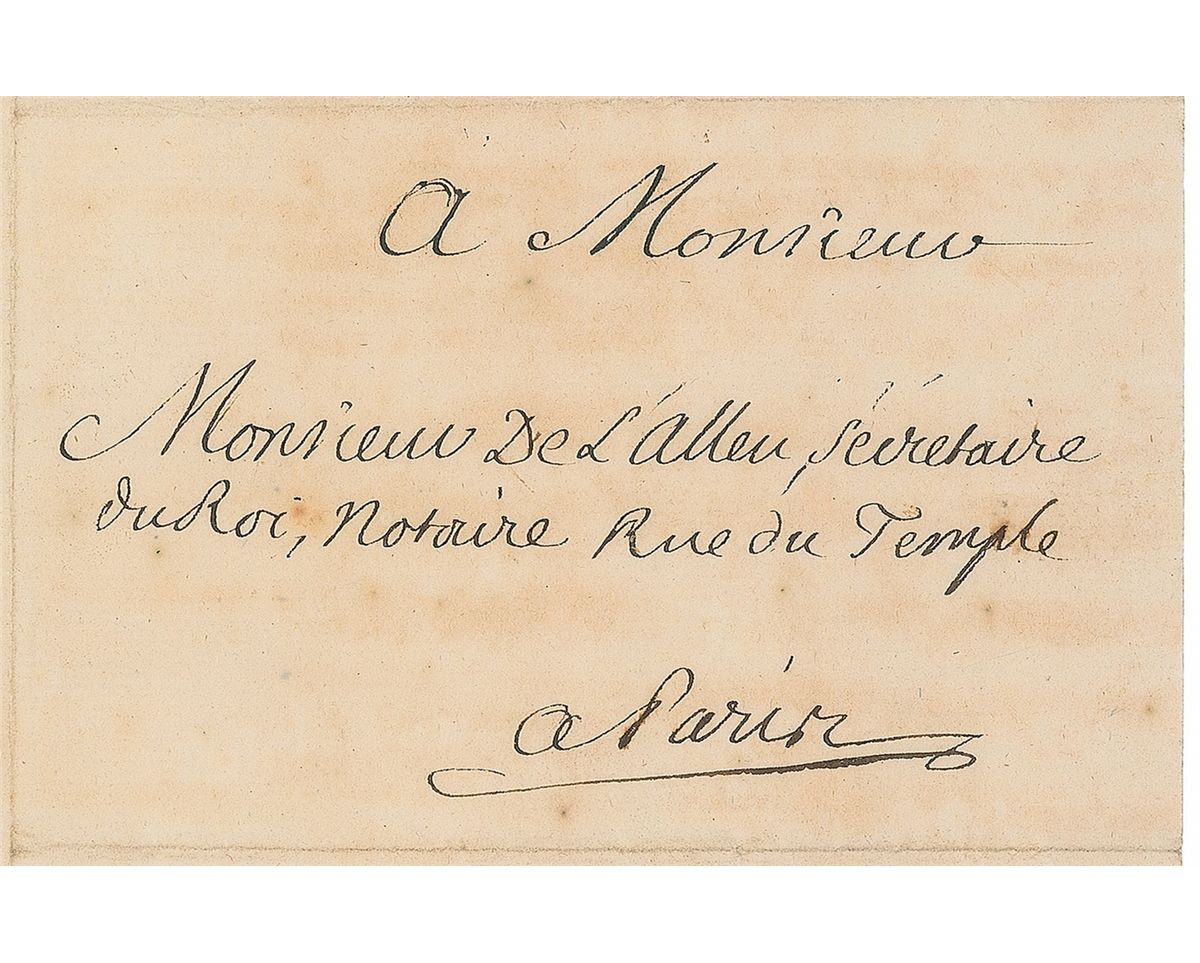 A Monsieur
Monsieur De L'Alleu, sécretaire
du Roi, Notaire Rue du Temple
a Paris